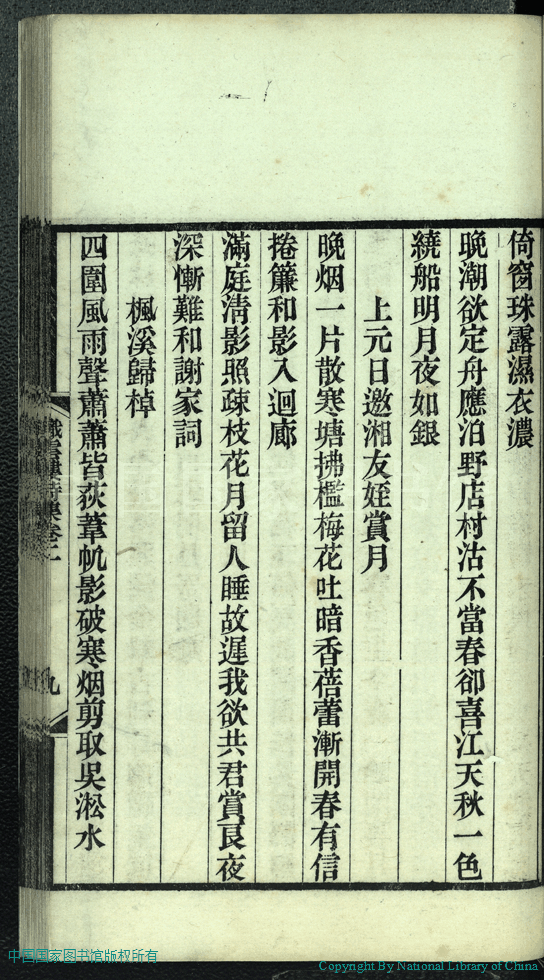 倚窗珠露濕衣濃
晚潮欲定舟應泊野店村沽不當春卻喜江天秋一色
繞船明月夜如銀
上元日邀湘友姪賞月
晚烟一片散寒塘拂檻梅花吐暗香蓓蕾漸開春有信
捲簾和影入迴廊
滿庭淸影照疎枝花月留人睡故遲我欲共君賞良夜
深慚難和謝家詞
楓溪歸棹
四圍風雨聲蕭蕭皆荻葦帆影破寒烟剪取吳淞水
九
中国国家图书馆版权所有
Copyright By National Library of China